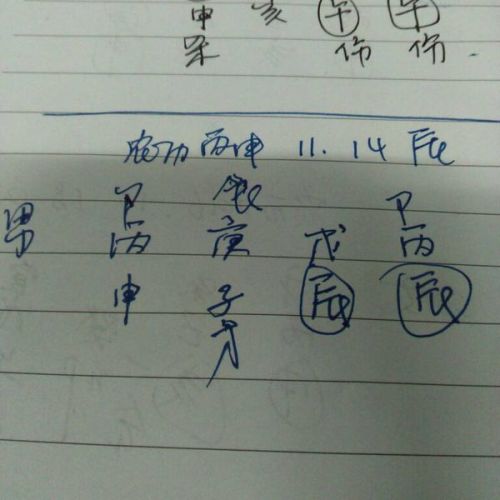 申 亥 午 午
杀 伤 伤
农历丙申 11. 14 辰
卩 食 卩
男 丙 庚 戊 丙
申 子 辰 辰
才